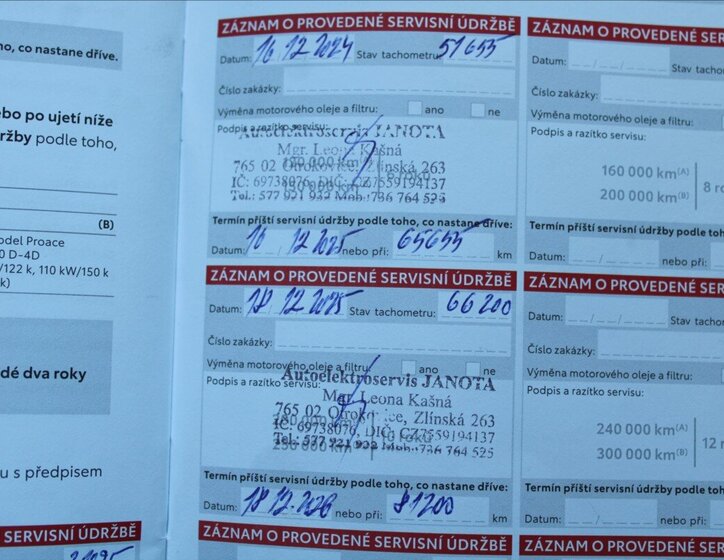 ho, co nastane dříve.
ebo po ujetí níže
držby podle toho,
(B)
odel Proace
0 D-4D
/122 k, 110 kW/150 k
k)
dé dva roky
u s předpisem
SERVISNÍ ÚDRŽBĚ
ZÁZNAM O PROVEDENÉ SERVISNÍ ÚDRŽBĚ
Datum: 16 / 12 / 2024 Stav tachometru: 51655
Číslo zakázky:
Výměna motorového oleje a filtru: ano ne
Podpis a razítko servisu:
Autoelektroservis JANOTA
Mgr. Leona Kašná
765 02 Otrokovice, Zlínská 263
IČ: 69738076, DIČ: CZ7559194137
Tel.: 577 921 932 Mob.: 736 764 525
Termín příští servisní údržby podle toho, co nastane dříve:
Datum: 16 / 12 / 2025 nebo při: 65655 km
ZÁZNAM O PROVEDENÉ SERVISNÍ ÚDRŽBĚ
Datum: 18 / 12 / 2025 Stav tachometru: 66200
Číslo zakázky:
Výměna motorového oleje a filtru: ano ne
Podpis a razítko servisu:
Autoelektroservis JANOTA
Mgr. Leona Kašná
765 02 Otrokovice, Zlínská 263
IČ: 69738076, DIČ: CZ7559194137
Tel.: 577 921 932 Mob.: 736 764 525
Termín příští servisní údržby podle toho, co nastane dříve:
Datum: 18 12 2026 nebo při: 81200 km
ZÁZNAM O PROVEDENÉ SERVISNÍ ÚDRŽBĚ
ZÁZNAM O PROVEDENÉ SERV
Datum: Stav tachom
Číslo zakázky:
Výměna motorového oleje a filtru:
Podpis a razítko servisu:
160 000 km(A)
200 000 km(B)
8 ro
Termín příští servisní údržby podle toh
Datum: nebo při:
ZÁZNAM O PROVEDENÉ SERVI
Datum: Stav tachom
Číslo zakázky:
Výměna motorového oleje a filtru:
Podpis a razítko servisu:
240 000 km(A)
300 000 km(B)
12 r
Termín příští servisní údržby podle toho
Datum: nebo při:
ZÁZNAM O PROVEDENÉ SERVIS